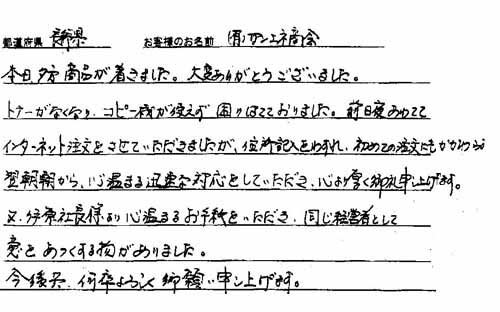 都道府県 長野県 お客様のお名前 (有)サンエネ商会
本日夕方商品が着きました。大変ありがとうございました。
トナーがなくなり、コピー機が使えず困りはてておりました。前日夜あわてて
インターネット注文をさせていただきましたが、住所記入をわすれ、初めての注文にもかかわらず
翌朝朝から、心温まる迅速な対応をしていただき、心より厚く御礼申し上げます。
又、伊原社長様より心温まるお手紙をいただき、同じ経営者として
意をあつくする物がありました。
今後共、何卒よろしく御願い申し上げます。